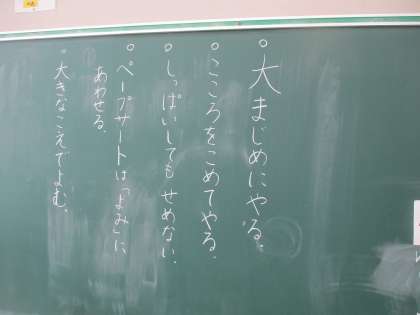 ○大まじめにやる。
○こころをこめてやる。
○しっぱいしてもせめない。
○ペープサートは「よみ」に
あわせる。
○大きなこえでよむ。